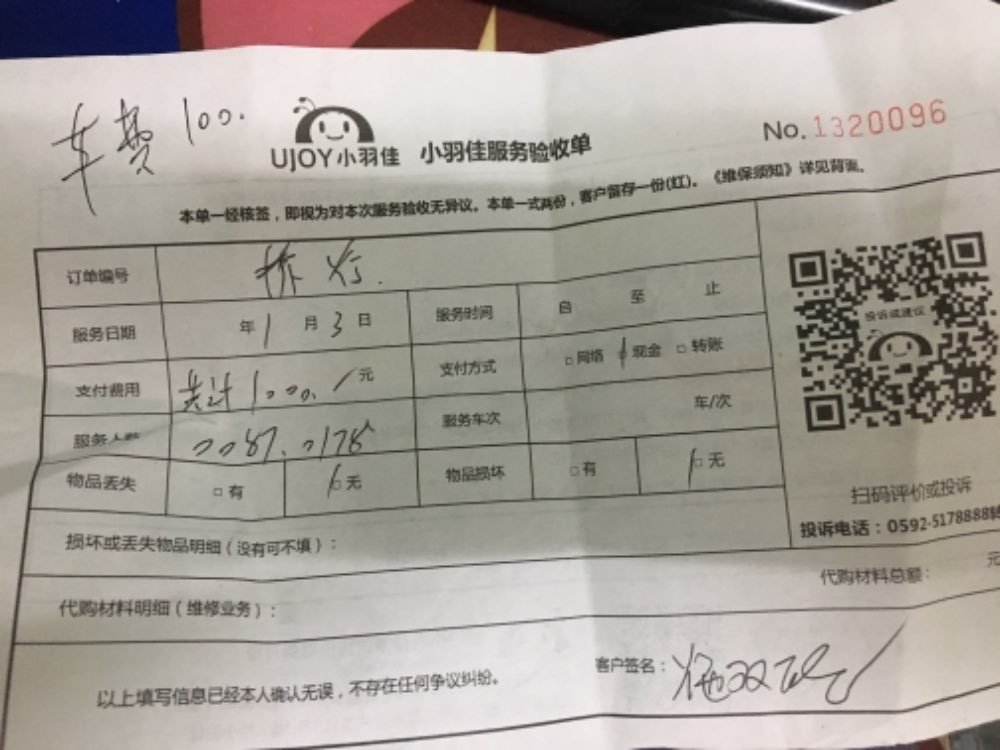 车费 100.
UJOY小羽佳 小羽佳服务验收单
No. 1320096
本单一经核签，即视为对本次服务验收无异议。本单一式两份，客户留存一份(红)。《维保须知》详见背面。
订单编号 拆灯.
服务日期 年1月3日 服务时间 自 至 止
支付费用 共计1000.元 支付方式 □网络 □现金 □转账
服务人数 0087.0178 服务车次 车/次
物品丢失 □有 □无 物品损坏 □有 □无
投诉或建议
扫码评价或投诉
投诉电话：0592-5178888转
损坏或丢失物品明细（没有可不填）：
代购材料明细（维修业务）： 代购材料总额： 元
以上填写信息已经本人确认无误，不存在任何争议纠纷。 客户签名：